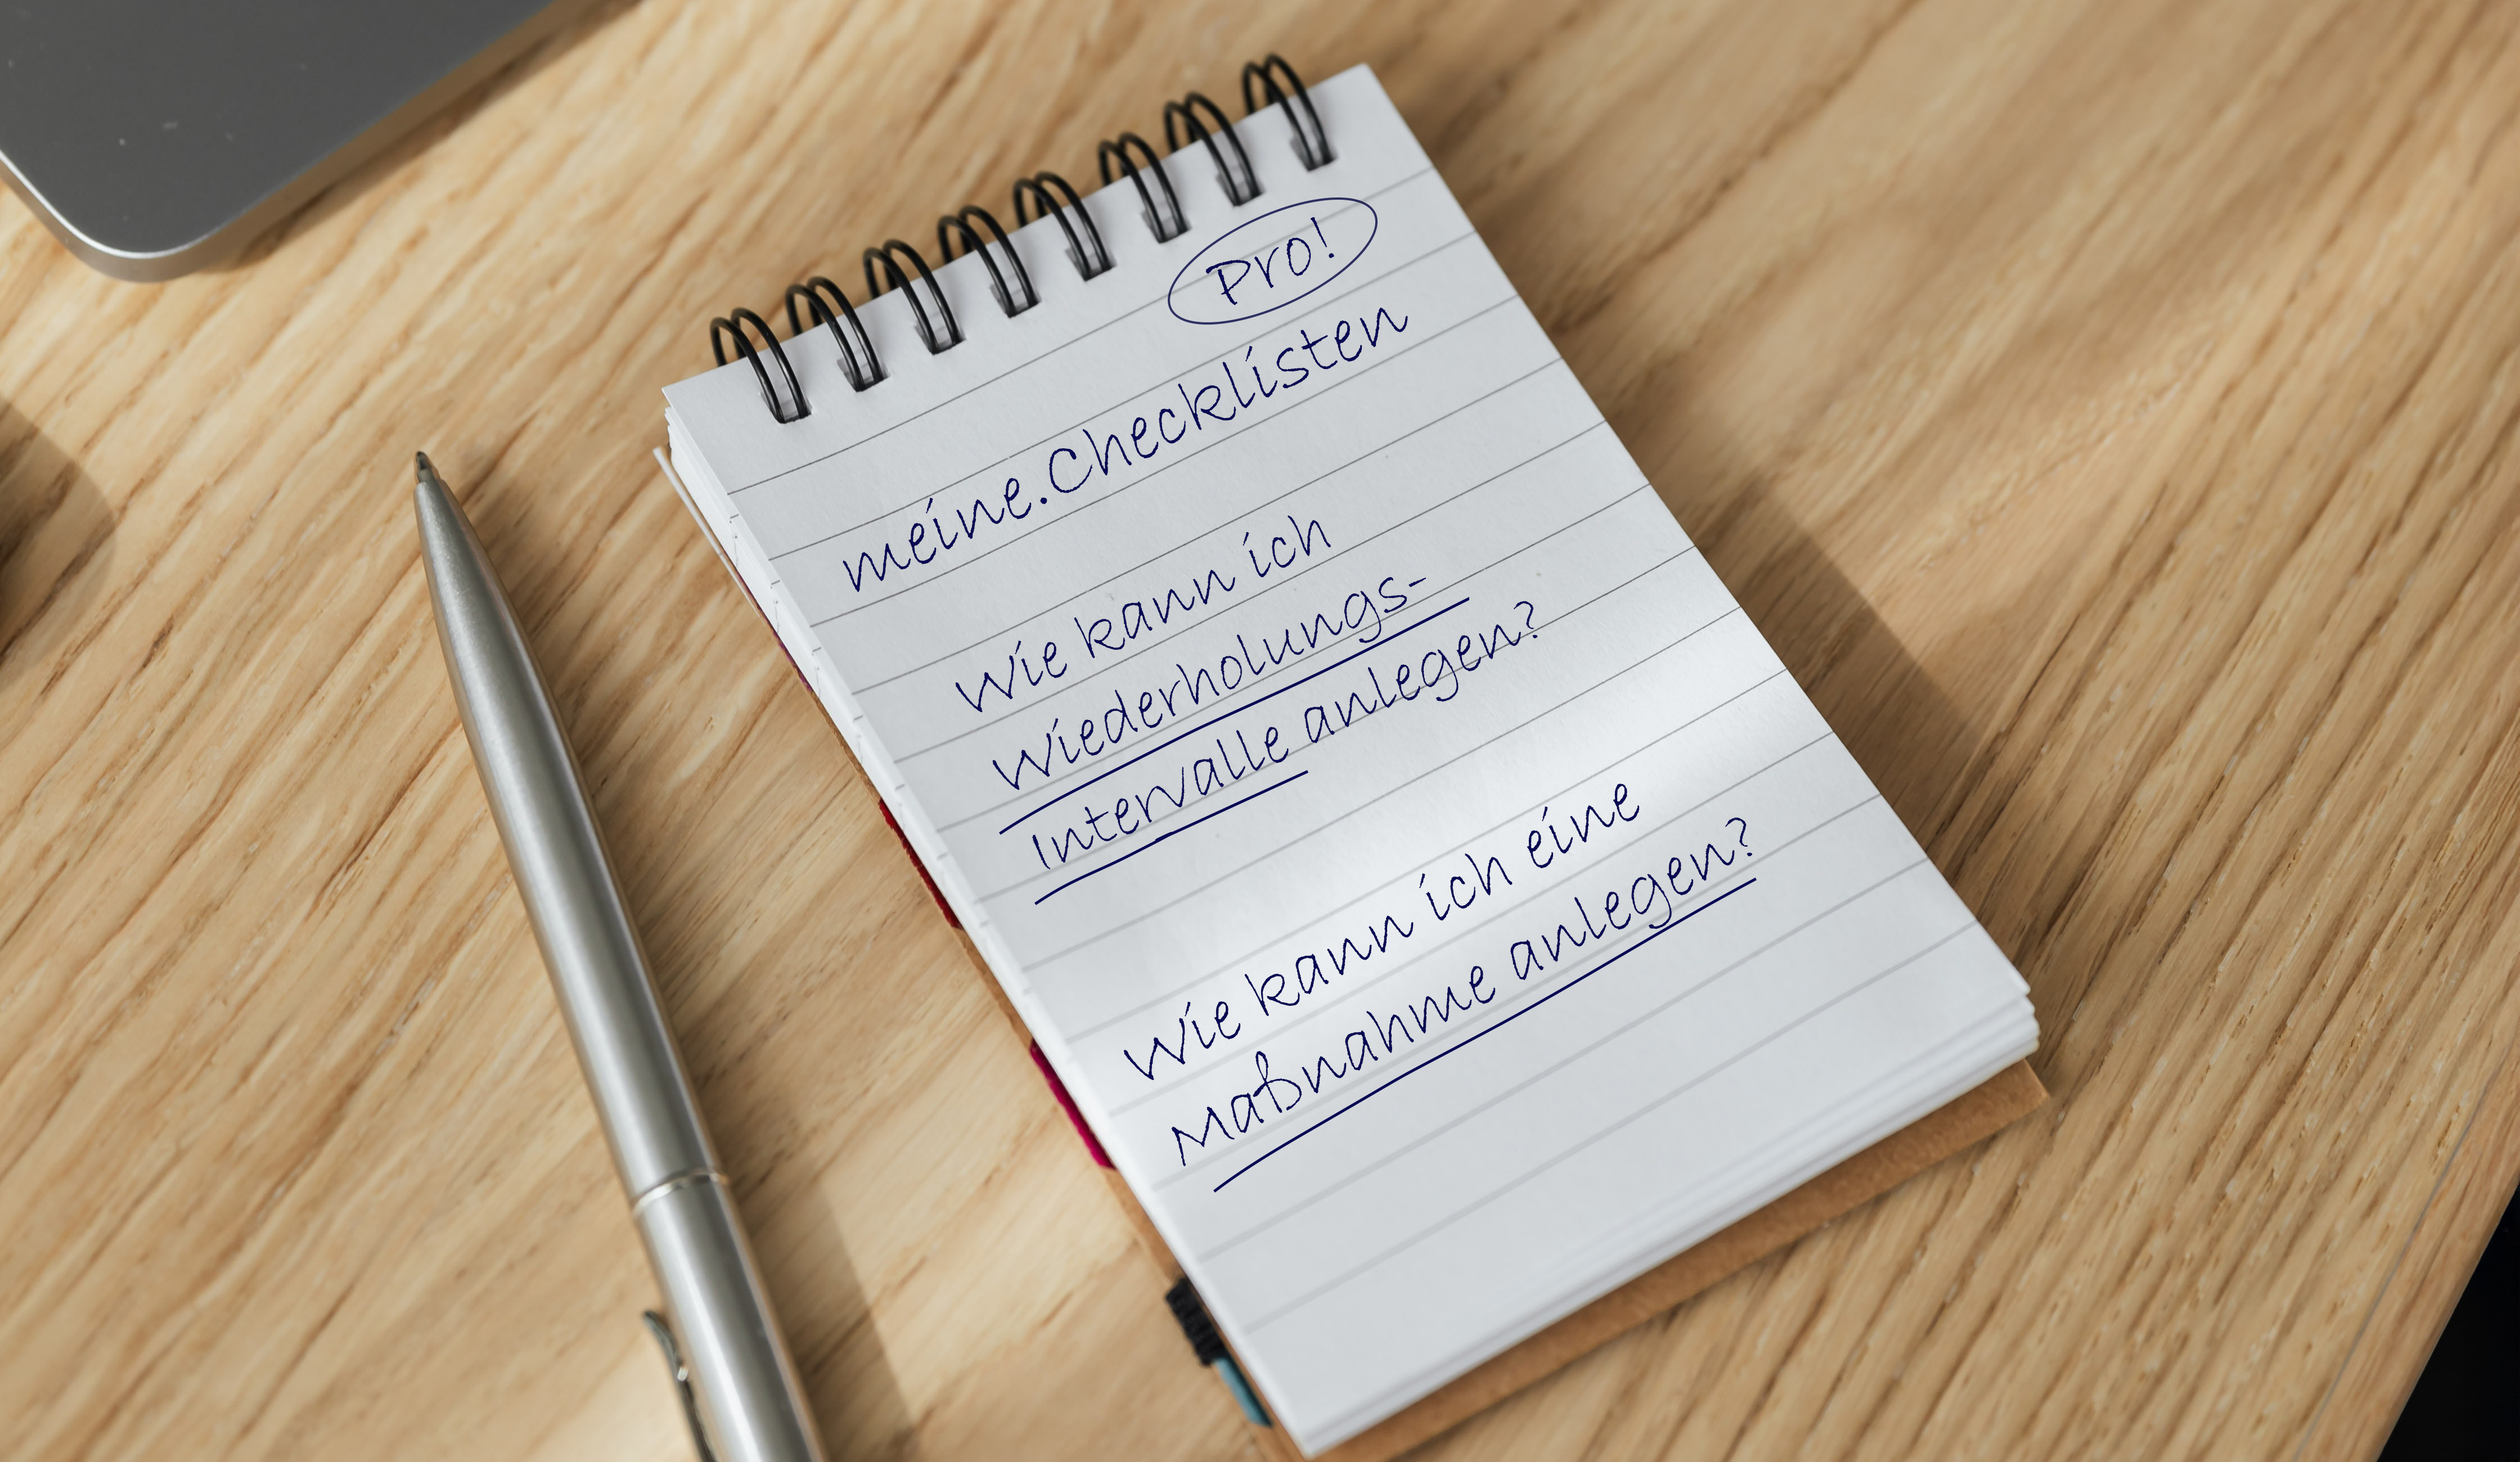 Pro!
meine.Checklisten
Wie kann ich
Wiederholungs-
Intervalle anlegen?
Wie kann ich eine
Maßnahme anlegen?